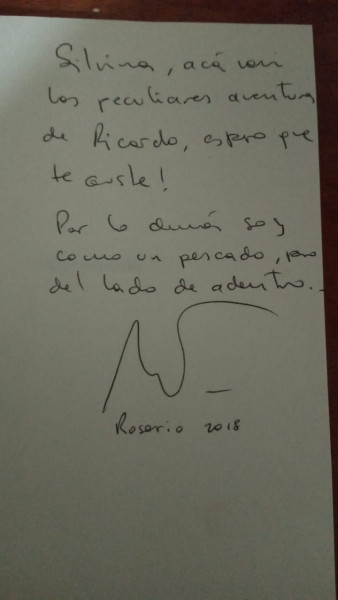 Silvina, acá van
las peculiares aventuras
de Ricardo, espero que
te guste!
Por lo demás soy
como un pescado, pero
del lado de adentro...
Rosario 2018